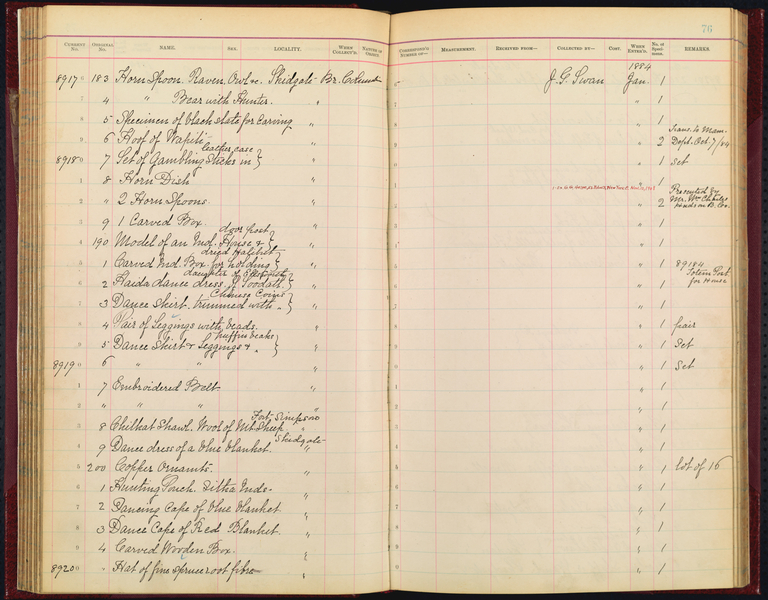 76
CURRENT No. ORIGINAL No. NAME. SEX. LOCALITY. WHEN COLLECT'D. NATURE OF OBJECT. CORRESPOND'G NUMBER OF— MEASUREMENT. RECEIVED FROM— COLLECTED BY— COST. WHEN ENTER'D. No. of Specimens. REMARKS.
1884
89170 183 Horn Spoon. Raven, Owl &c. Skidgate Br. Columb J. G. Swan Jan. 1
7 4 " Bear with Hunter. " " 1
8 5 Specimen of black slate for carving " " 1
9 6 Hoof of Wapiti " " 2 Trans. to Mam. Dept. Oct. 7/84
leather case
89180 7 Set of Gambling Sticks in } " " 1 Set
1 8 Horn Dish " 1
2 " 2 Horn Spoons. " " 2 Presented by Mr. Wm Charles Hudson B. Co.
3 9 1 Carved Box. " " 1
door post
4 190 Model of an Ind. House & } " " 1
dried Halibut
5 1 Carved Ind. Box for holding } " " 1 89184 Totem Post for House
daughter of
6 2 Haida dance dress, } " " 1
Chinese Coins
7 3 Dance Skirt trimmed with " } " " 1
8 4 Pair of Leggings with beads. " " 1 pair
puffin beaks
9 5 Dance Skirt & Leggings & " } " " 1 Set
89190 6 " " " " 1 Set
1 7 Embroidered Belt " " 1
2 " " " " " 1
Fort Simpson
3 8 Chilkat Shawl. Wool of Mt. Sheep " " 1
Skidgate
4 9 Dance dress of a blue blanket. " " 1
5 200 Copper Ornamts. " " 1 lot of 16
6 1 Hunting Pouch. Sitka Inds. " " 1
7 2 Dancing Cape of blue blanket " " 1
8 3 Dance Cape of Red Blanket. " " 1
9 4 Carved Wooden Box. " " 1
89200 " Hat of fine spruce root fibre " " 1